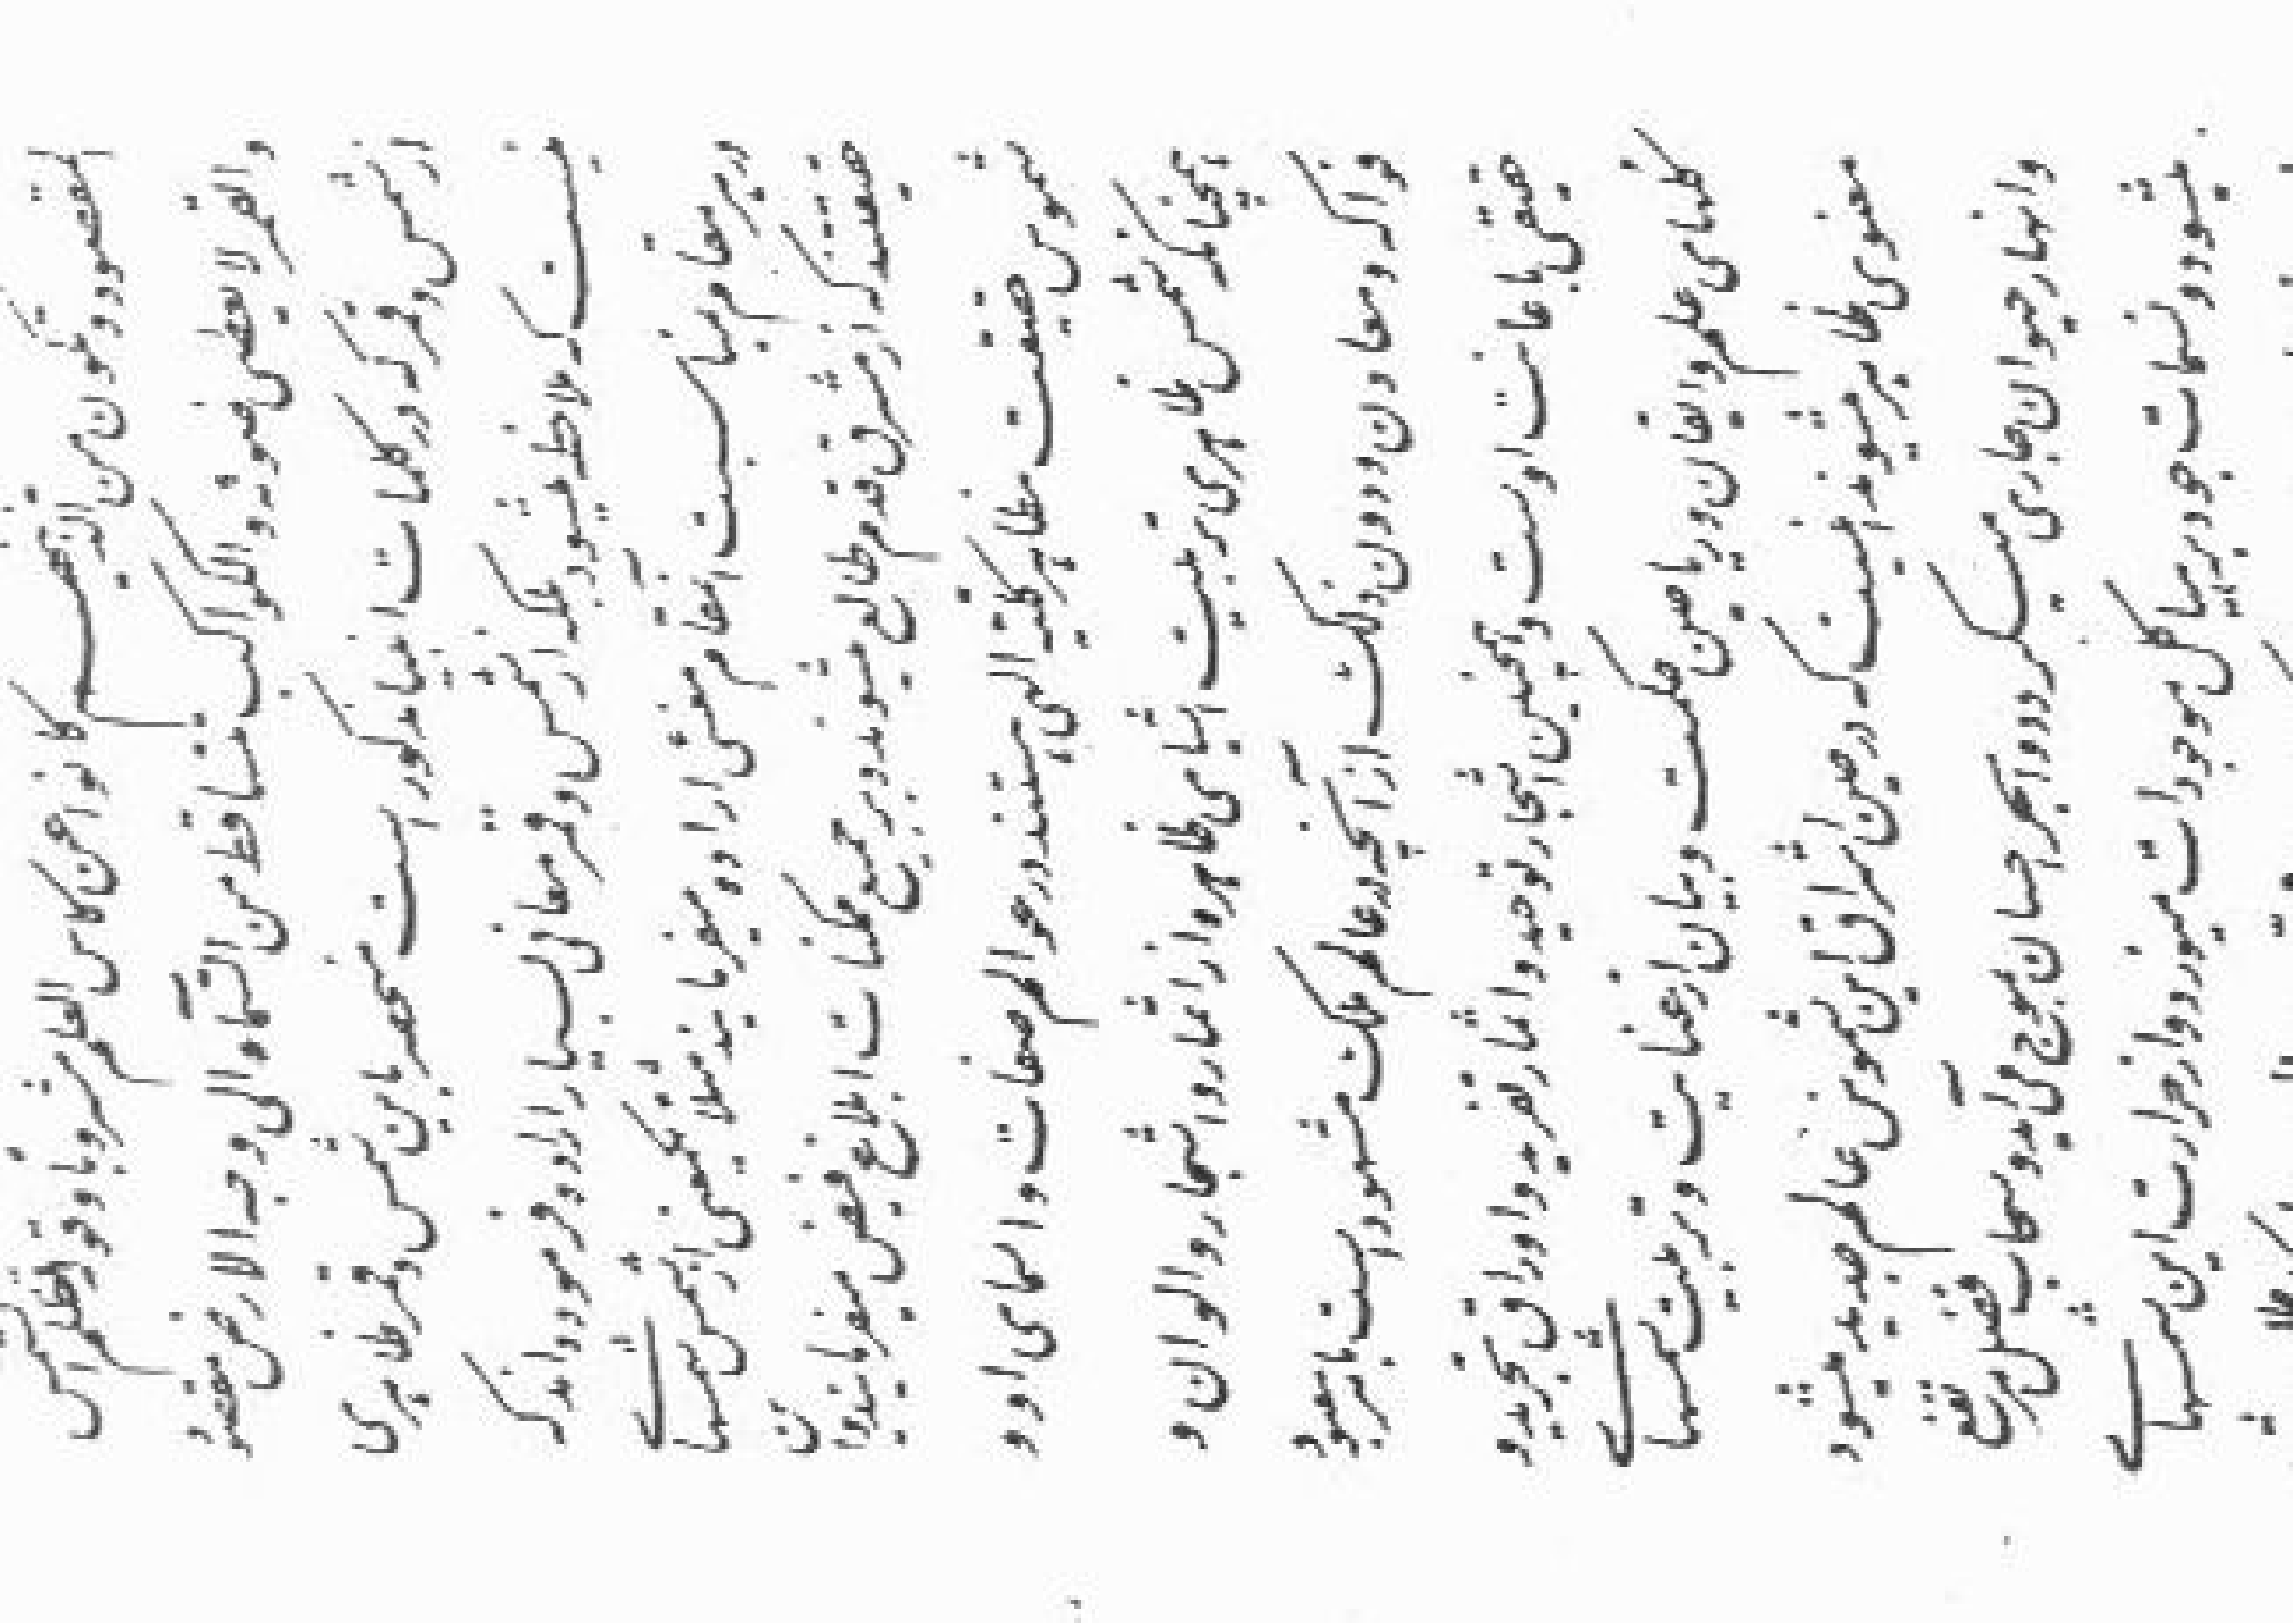 المقصود و تکون من الذینهم کانوا عن کاس العلم مشروبا و قوله تظلم الشمس
والقمر لا یعطی ضوئه والکواکب تتساقط من السمآء والی وجه الارض مقصود
از شمس و قمر که در کلمات انبیا مذکور است منحصر باین شمس و قمر ظاهری
نیست که ملاحظه میشود بلکه از شمس و قمر معانی بسیار اراده فرموده‌اند که
در هر مقام بمناسبت آنمقام معنئی اراده میفرمایند مثلا یکمعنی از شمس شمسهای
حقیقتند که از مشرق قدم طالع میشوند و بر جمیع ممکنات ابلاغ فیض میفرمایند و این
شموس حقیقت مظاهر کلیه الهی هستند در عوالم صفات و اسمای او و
همچنانکه شمس ظاهری تربیت اشیای ظاهره از اثمار و اشجار و الوان و
فواکه و معادن و دون ذلک از آنچه در عالم ملک مشهود است بامر معبود
حقیقی باعانت اوست و همچنین اشجار توحید و اثمار تفرید و اوراق تجرید و
گلهای علم و ایقان و ریاحین حکمت و بیان از عنایت و تربیت شمسهای
معنوی ظاهر میشود اینست که در حین اشراق این شموس عالم جدید میشود
و انهار حیوان جاری میگردد و ابحر احسان بموج میآید و سحاب فضل مرتفع
میشود و نسمات جود بر هیاکل موجودات میوزد و از حرارت این شمسهای